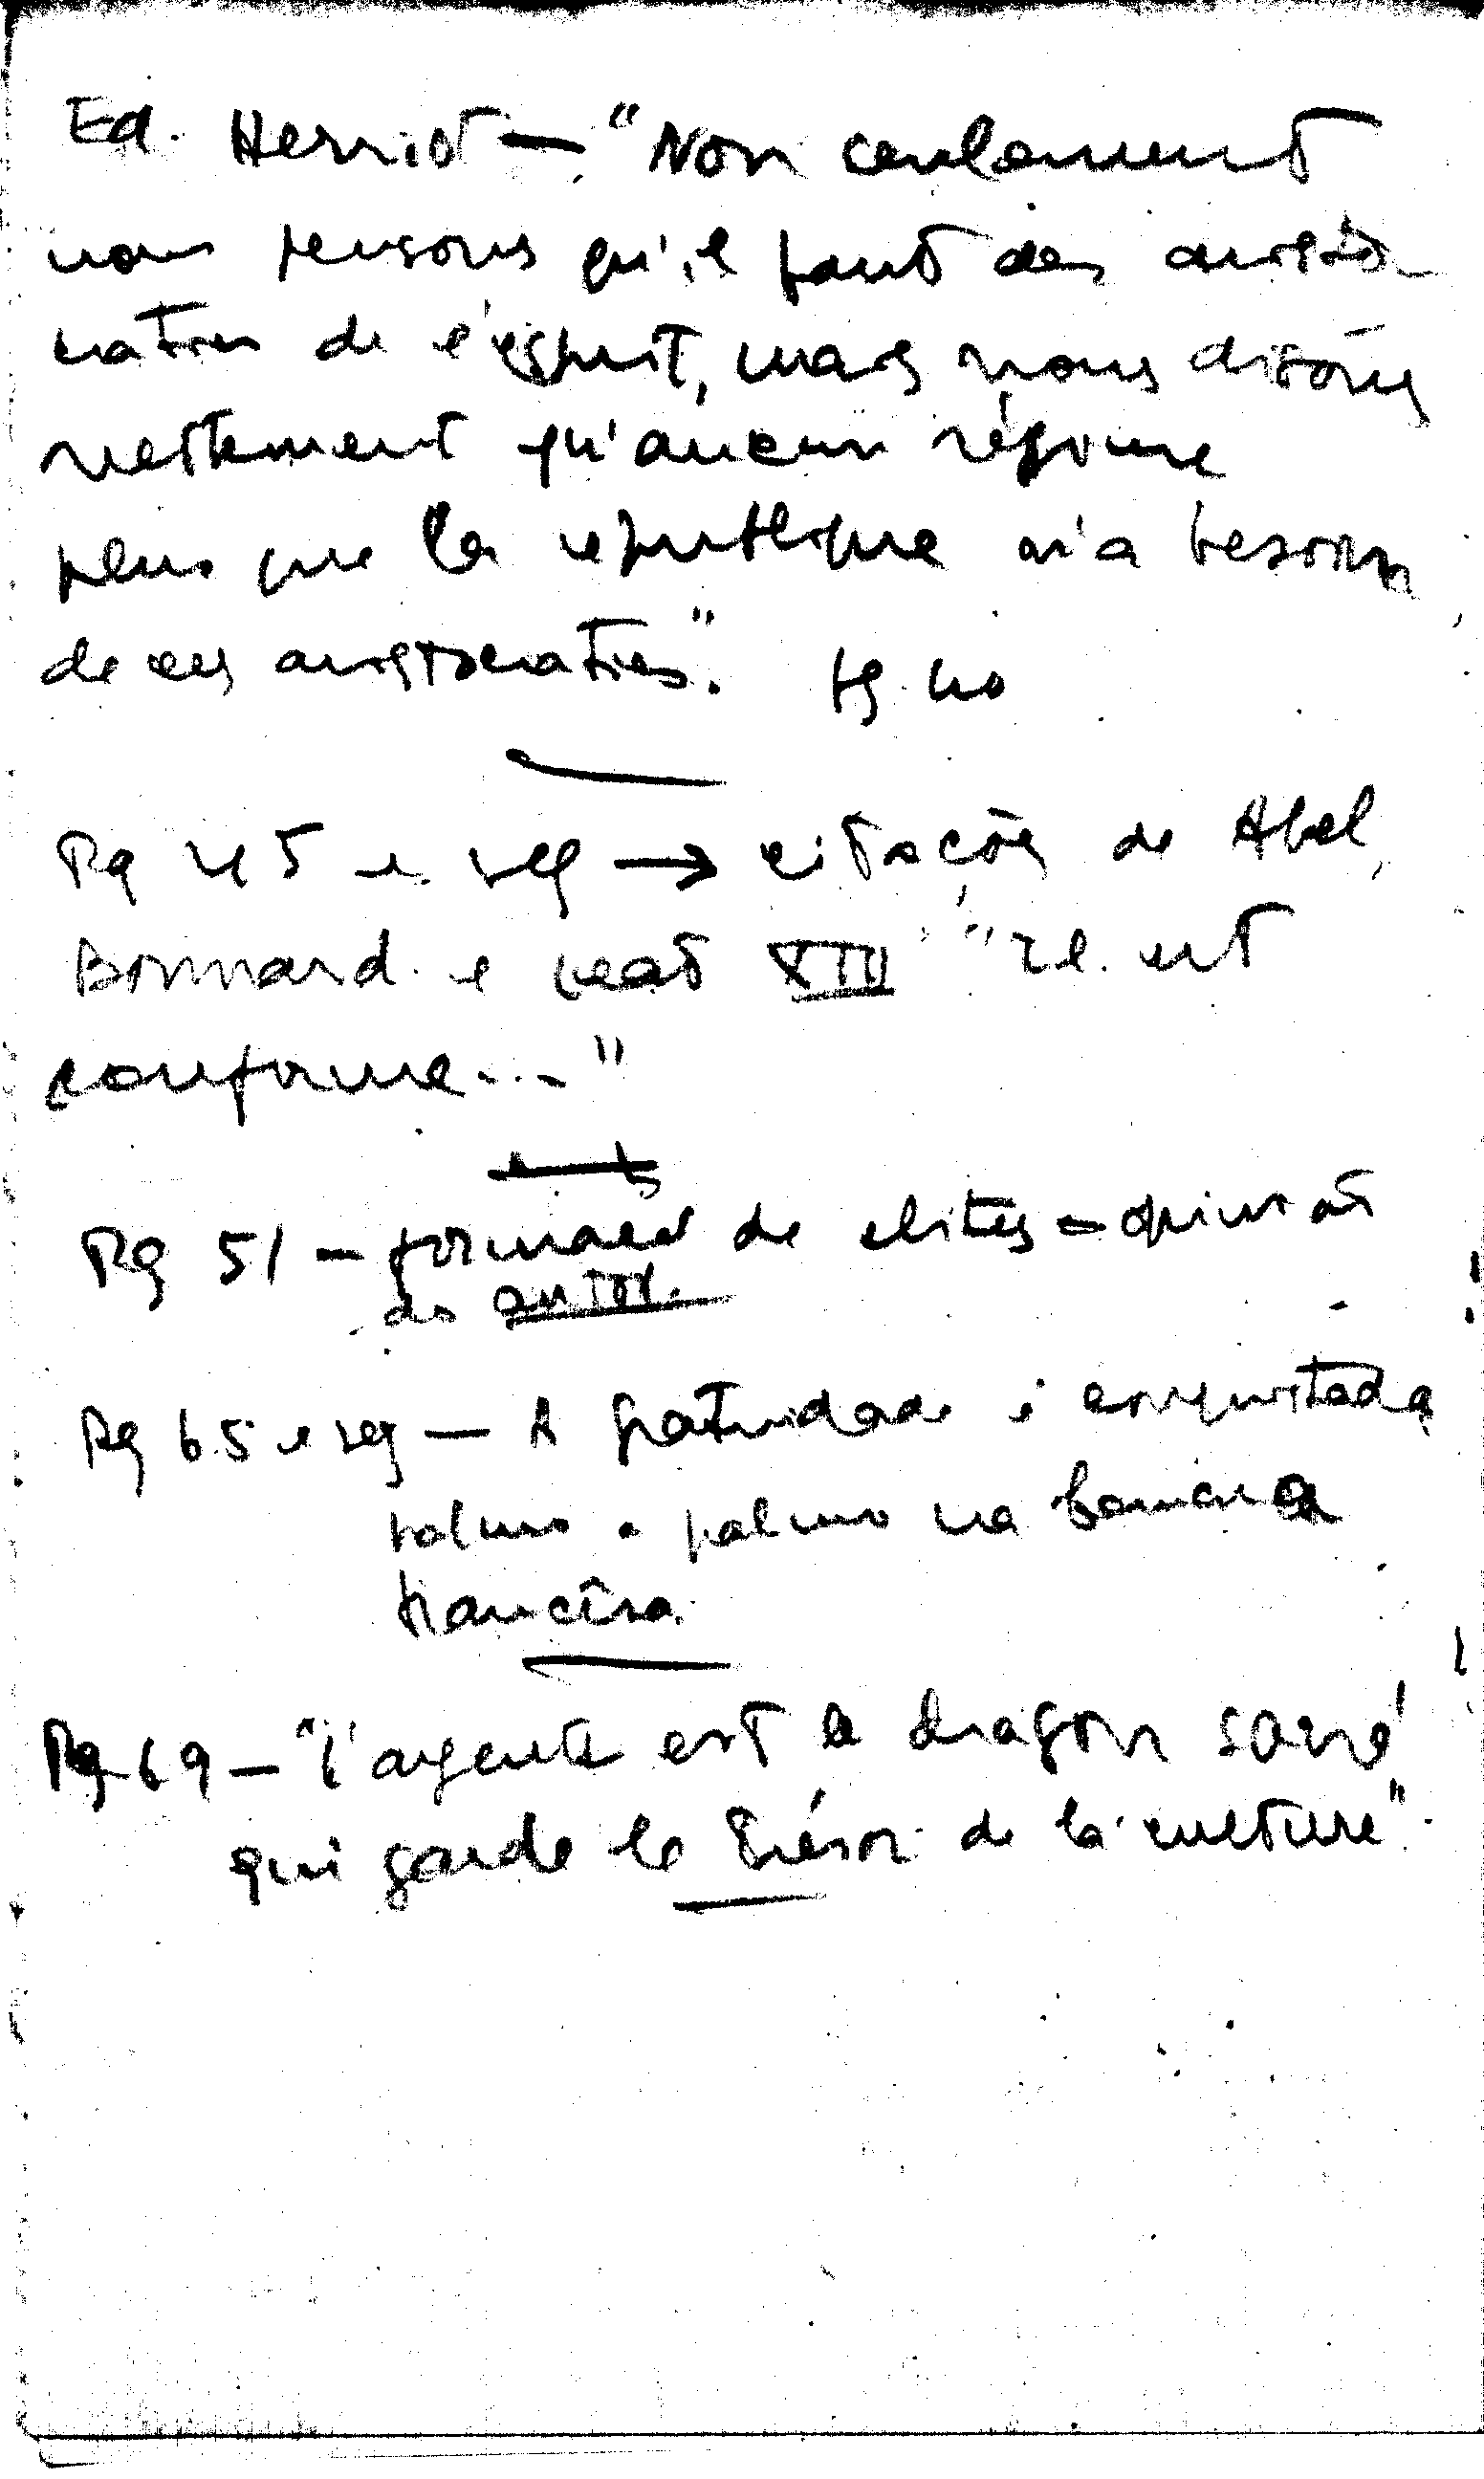 Ed. Herriot — "Non ceulement
nous pensons qu'il faut des aristo-
craties de l'esprit, mais nous disons
nettement qu'aucun régime
plus que la republique n'a besoin
de ces aristocraties". Pg. 40
Pg 45 e seg → citações de Abel
Bonnard e "Il est
conforme..."
Pg 51 - formação de elites - opinião
do autor.
Pg 65 e seg — A gratuidade é conquistada
palmo a palmo na Camara
francêsa.
Pg 69 — "l'argent est le dragon sacré
qui garde le trésor de la culture".